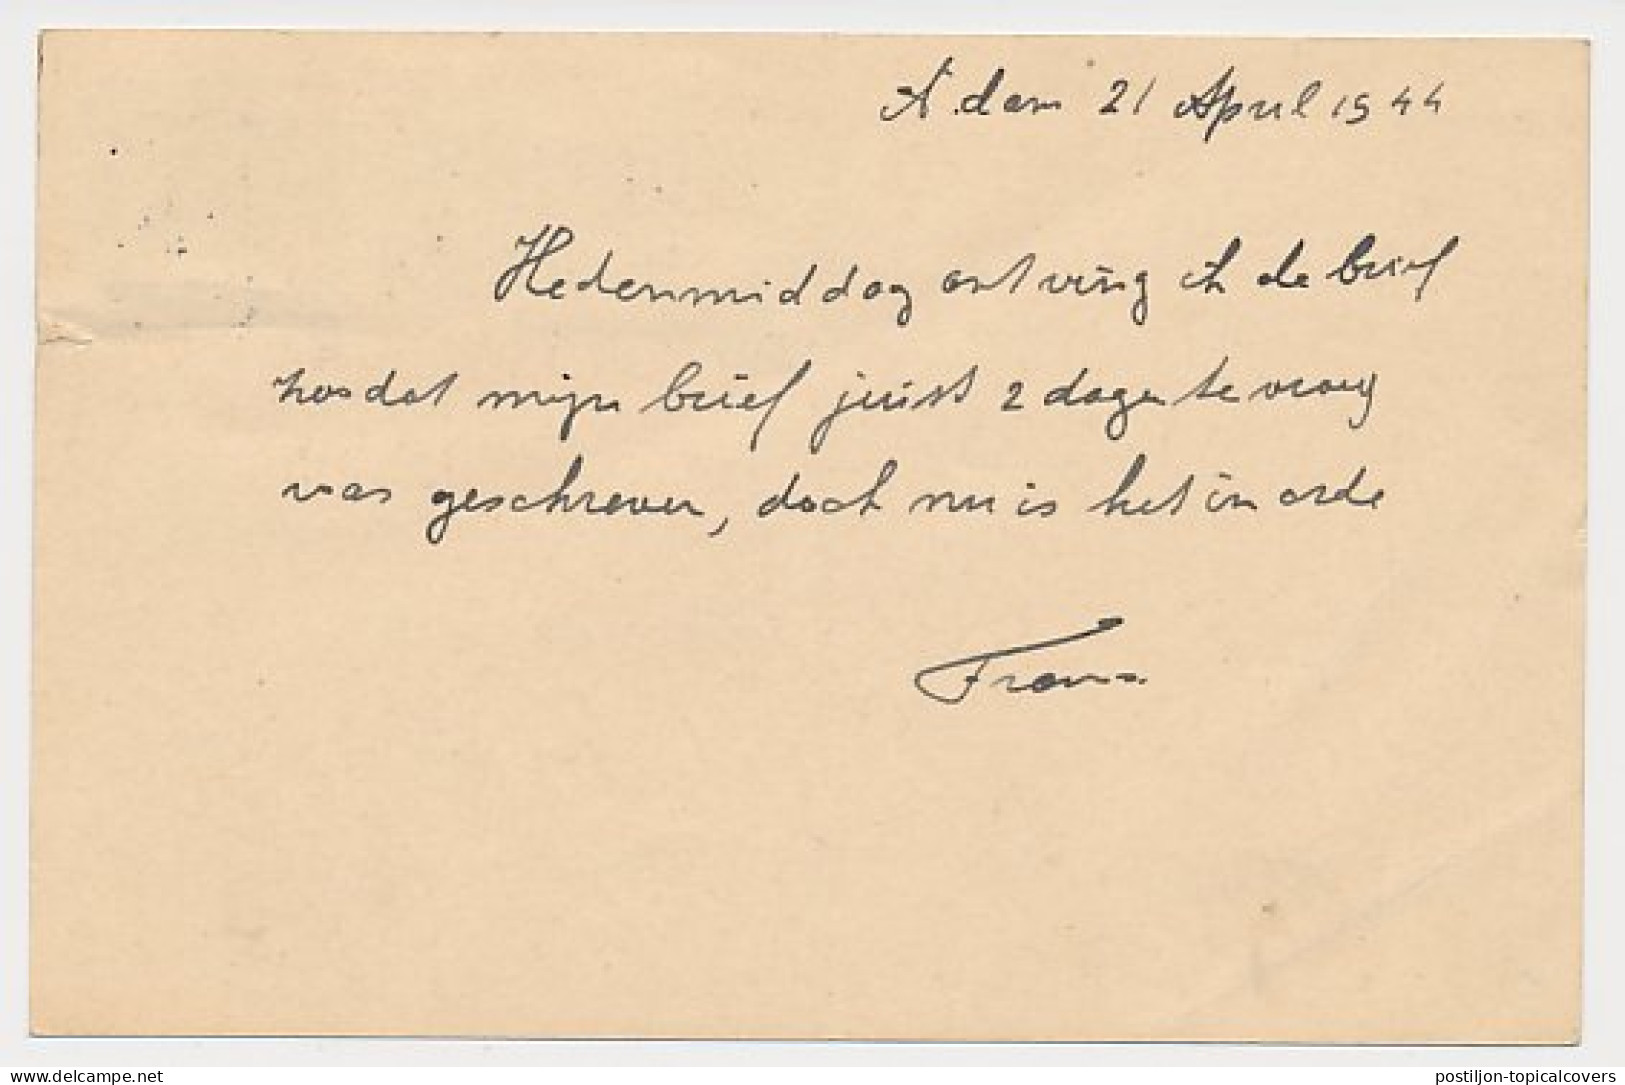 A.dam 21 April 1944
Hedenmiddag ontving ik de brief
zoodat mijn brief juist 2 dagen te vroeg
was geschreven, doch nu is het in orde
Frans
www.delcampe.net
postiljon-topicalcovers